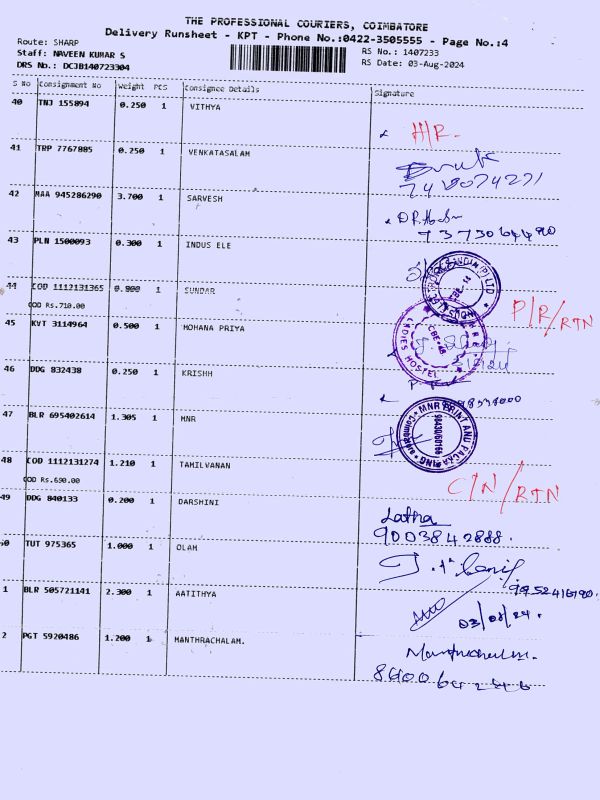 THE PROFESSIONAL COURIERS, COIMBATORE
Delivery Runsheet - KPT - Phone No.:0422-3505555 - Page No.:4
Route: SHARP
RS No.: 1407233
Staff: NAVEEN KUMAR S
RS Date: 03-Aug-2024
DRS No.: DCJB140723304
S No Consignment No Weight PCS Consignee Details Signature
40 TNJ 155894 0.250 1 VITHYA
H/R-
41 TRP 7767885 0.250 1 VENKATASALAM
42 MAA 945286290 3.700 1 SARVESH
43 PLN 1500093 0.300 1 INDUS ELE
44 COD 1112131365 0.800 1 SUNDAR
COD Rs.710.00
P/R/RTN
45 KVT 3114964 0.500 1 MOHANA PRIYA
LADIES HOSTEL
46 DDG 832438 0.250 1 KRISHH
47 BLR 695402614 1.305 1 MNR
MNR PRINT AND PACKAGING
48 COD 1112131274 1.210 1 TAMILVANAN
COD Rs.690.00
C/N/RTN
49 DDG 840133 0.200 1 DARSHINI
Latha
9003842888.
50 TUT 975365 1.000 1 OLAM
1 BLR 505721141 2.300 1 AATITHYA
03/08/24.
2 PGT 5920486 1.200 1 MANTHRACHALAM.